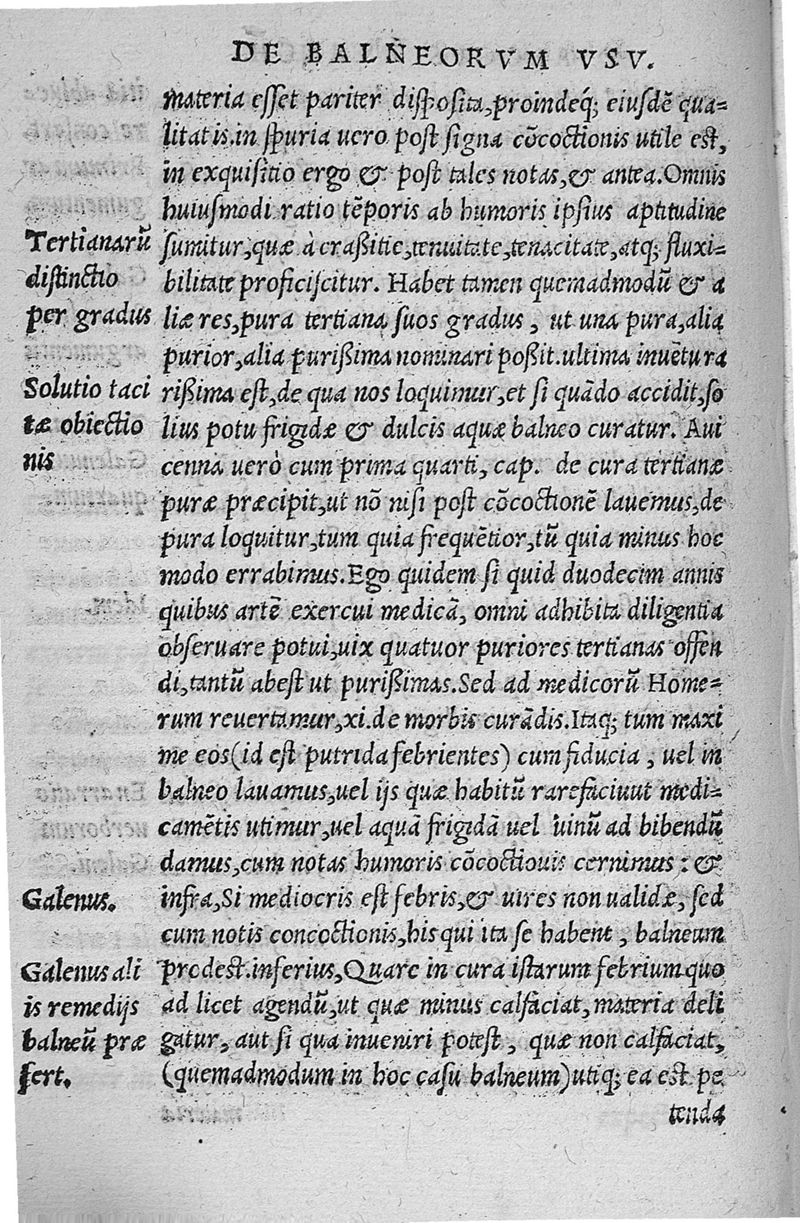 DE BALNEORVM VSV.
materia esset pariter disposita, proindeq; eiusdē qua=
litatis. in spuria uero post signa cōcoctionis utile est,
in exquisitio ergo & post tales notas, & antea. Omnis
huiusmodi ratio tēporis ab humoris ipsius aptitudine
Tertianarū
sumitur, quæ à craßitie, tenuitate, tenacitate, atq; fluxi=
distinctio
bilitate proficiscitur. Habet tamen quemadmodū & a
per gradus
liæ res, pura tertiana suos gradus, ut una pura, alia
purior, alia purißima nominari poßit. ultima inuētu ra
Solutio taci
rißima est, de qua nos loquimur, et si quādo accidit, so
tæ obiectio
lius potu frigidæ & dulcis aquæ balneo curatur. Aui
nis
cenna uerò cum prima quarti, cap. de cura tertianæ
puræ præcipit, ut nō nisi post cōcoctionē lauemus, de
pura loquitur, tum quia frequētior, tū quia minus hoc
modo errabimus. Ego quidem si quid duodecim annis
quibus artē exercui medicā, omni adhibita diligentia
obseruare potui, uix quatuor puriores tertianas offen
di, tantū abest ut purißimas. Sed ad medicorū Home=
rum reuertamur, xi. de morbis curādis. Itaq; tum maxi
me eos (id est putrida febrientes) cum fiducia, uel in
balneo lauamus, uel ijs quæ habitū rarefaciuut medi=
camētis utimur, uel aquā frigidā uel uinū ad bibendū
damus, cum notas humoris cōcoctiouis cernimus: &
Galenus.
infra, Si mediocris est febris, & uires non ualidæ, sed
cum notis concoctionis, his qui ita se habent, balneum
Galenus ali
prodest. inferius, Quare in cura istarum febrium quo
is remedijs
ad licet agendū, ut quæ minus calfaciat, materia deli
balneū præ
gatur, aut si qua inueniri potest, quæ non calfaciat,
fert.
(quemadmodum in hoc casu balneum) utiq; ea est pe
tenda